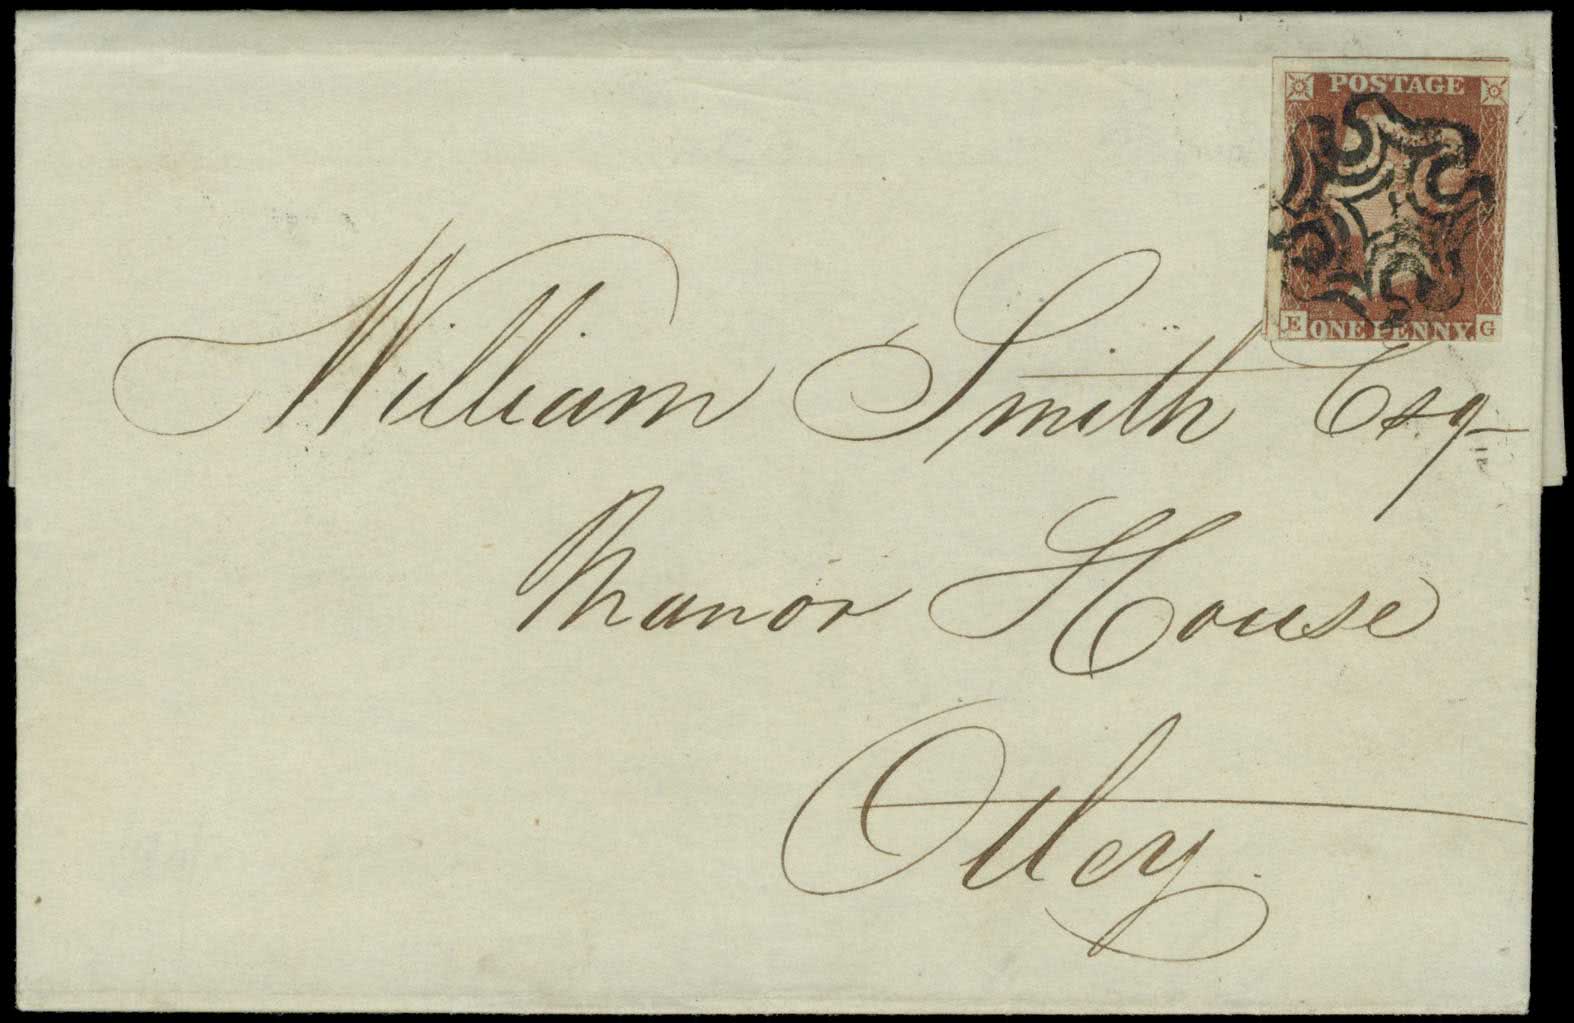 POSTAGE
E ONE PENNY. G
William Smith Esq
Manor House
Otley